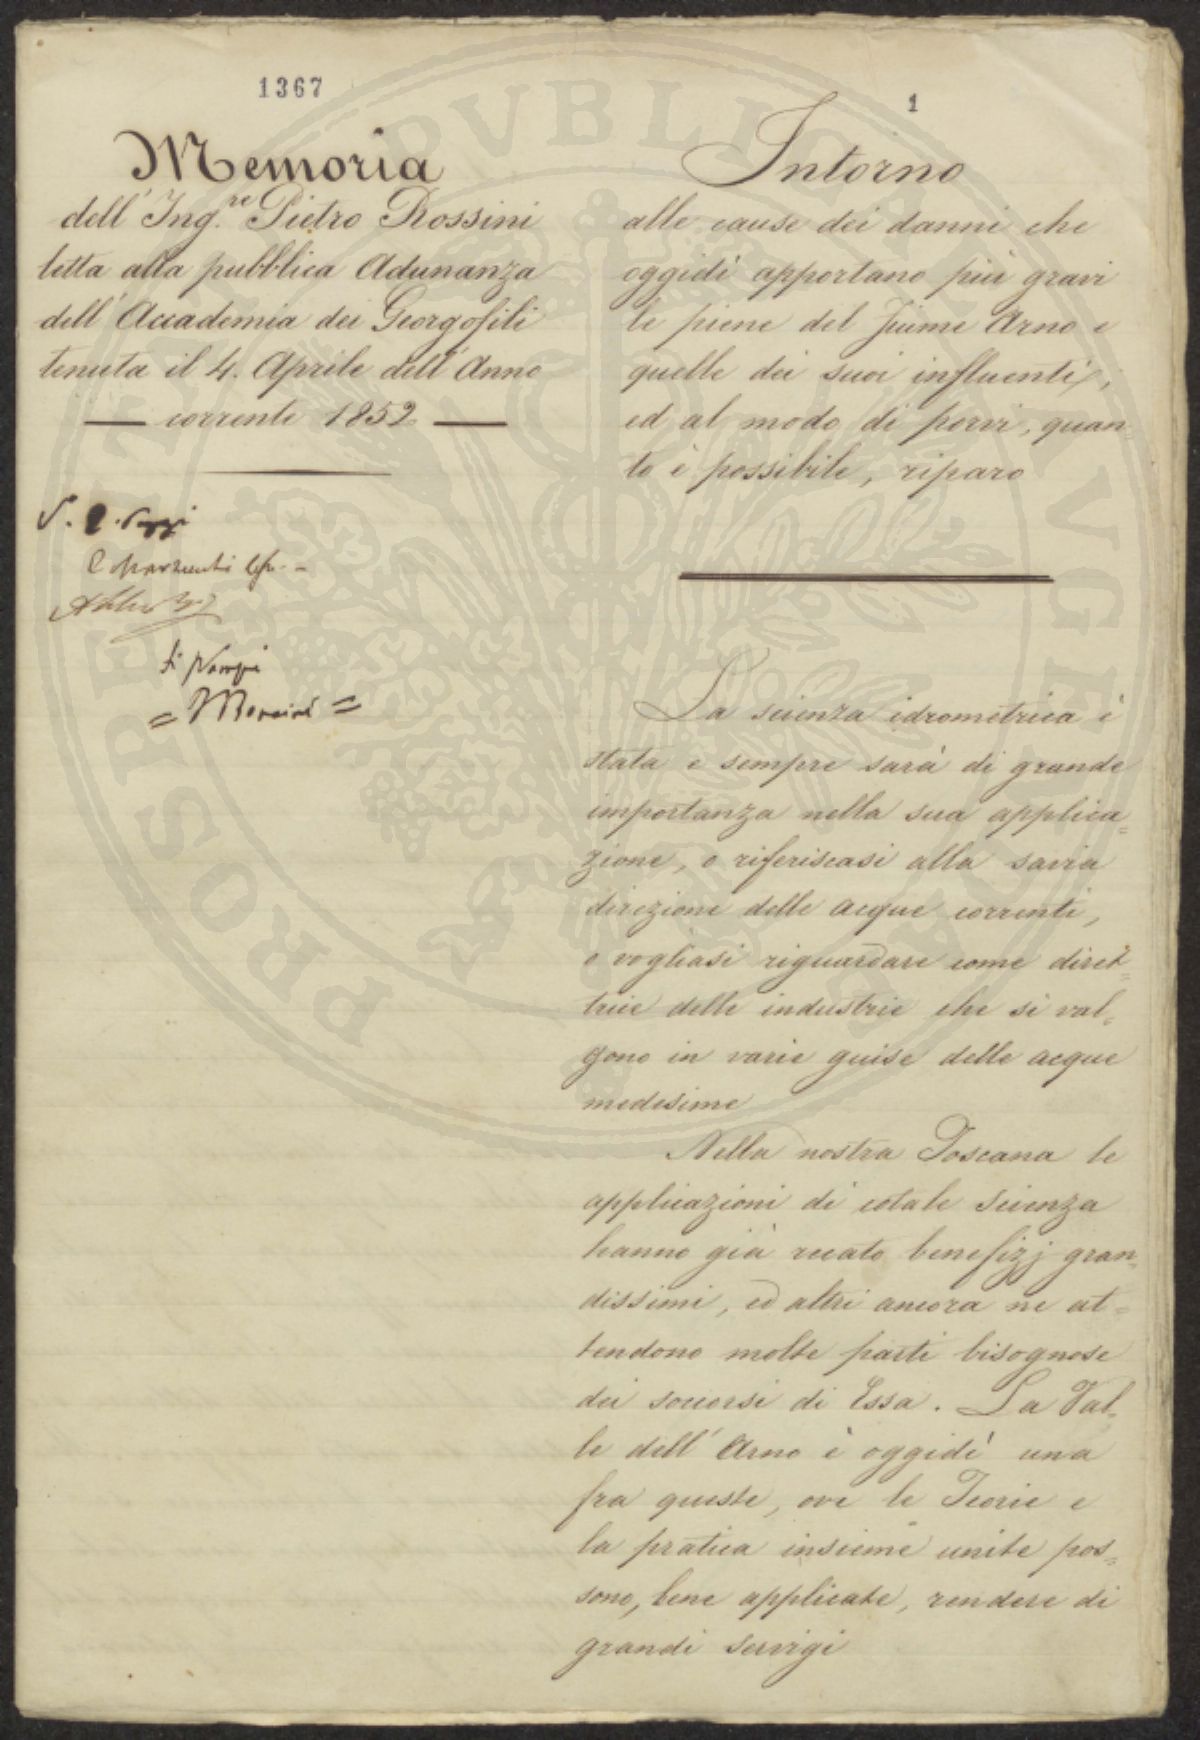 1367
1
Memoria
dell'Ing.re Pietro Rossini
letta alla pubblica Adunanza
dell'Accademia dei Georgofili
tenuta il 4. Aprile dell'Anno
— corrente 1852 —
Intorno
alle cause dei danni che
oggidì apportano più gravi
le piene del fiume Arno e
quelle dei suoi influenti,
ed al modo di porvi, quan-
to è possibile, riparo
La scienza idrometrica è
stata e sempre sarà di grande
importanza nella sua applica=
zione, o riferiscasi alla savia
direzione delle acque correnti,
o vogliasi riguardare come diret=
trice delle industrie che si val=
gono in varie guise delle acque
medesime
Nella nostra Toscana le
applicazioni di cotale scienza
hanno già recato benefizj gran=
dissimi, ed altri ancora ne at=
tendono molte parti bisognose
dei soccorsi di Essa. La Val=
le dell'Arno è oggidì una
fra queste, ove le Teorie e
la pratica insieme unite pos=
sono, bene applicate, rendere di
grandi servigi